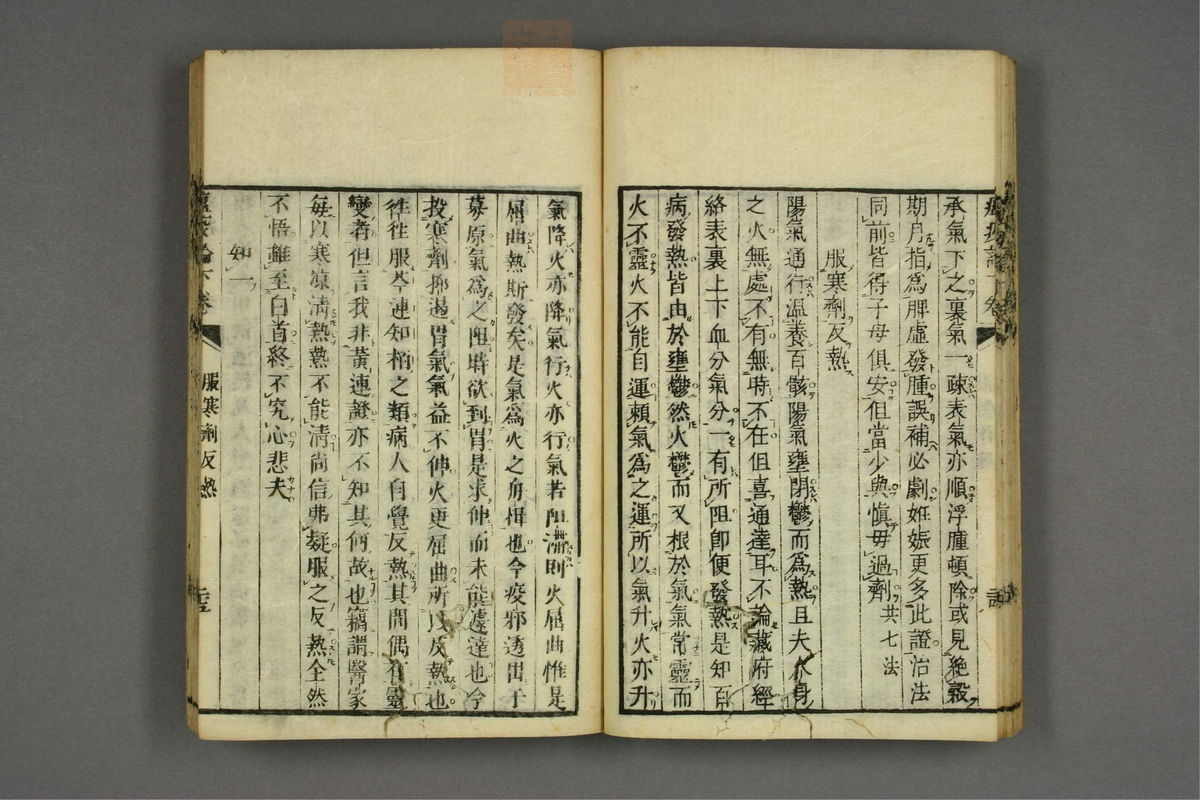 承氣下之裏氣一疎表氣亦順浮腫頓除或見絶穀
期月指爲脾虛發腫誤補必劇姙娠更多此證治法
同前皆得子母俱安但當少與愼毋過劑共七法
服寒劑反熱
陽氣通行温養百骸陽氣壅閉鬱而爲熱且夫人身
之火無處不有無時不在但喜通達耳不論藏府經
絡表裏上下血分氣分一有所阻卽便發熱是知百
病發熱皆由於壅鬱然火鬱而又根於氣氣常靈而
火不靈火不能自運頼氣爲之運所以氣升火亦升
氣降火亦降氣行火亦行氣若阻滯則火屈曲惟是
屈曲熱斯發矣是氣爲火之舟楫也今疫邪透出于
募原氣爲之阻時欲到胃是求伸而未能遽達也今
投寒劑抑遏胃氣氣益不伸火更屈曲所以反熱也
徃徃服芩連知柏之類病人自覺反熱其間偶有靈
變者但言我非黃連證亦不知其何故也竊謂醫家
每以寒凉淸熱熱不能淸尙信弗疑服之反熱全然
不悟雖至白首終不究心悲夫
知一
瘟疫論下卷
服寒劑反熱